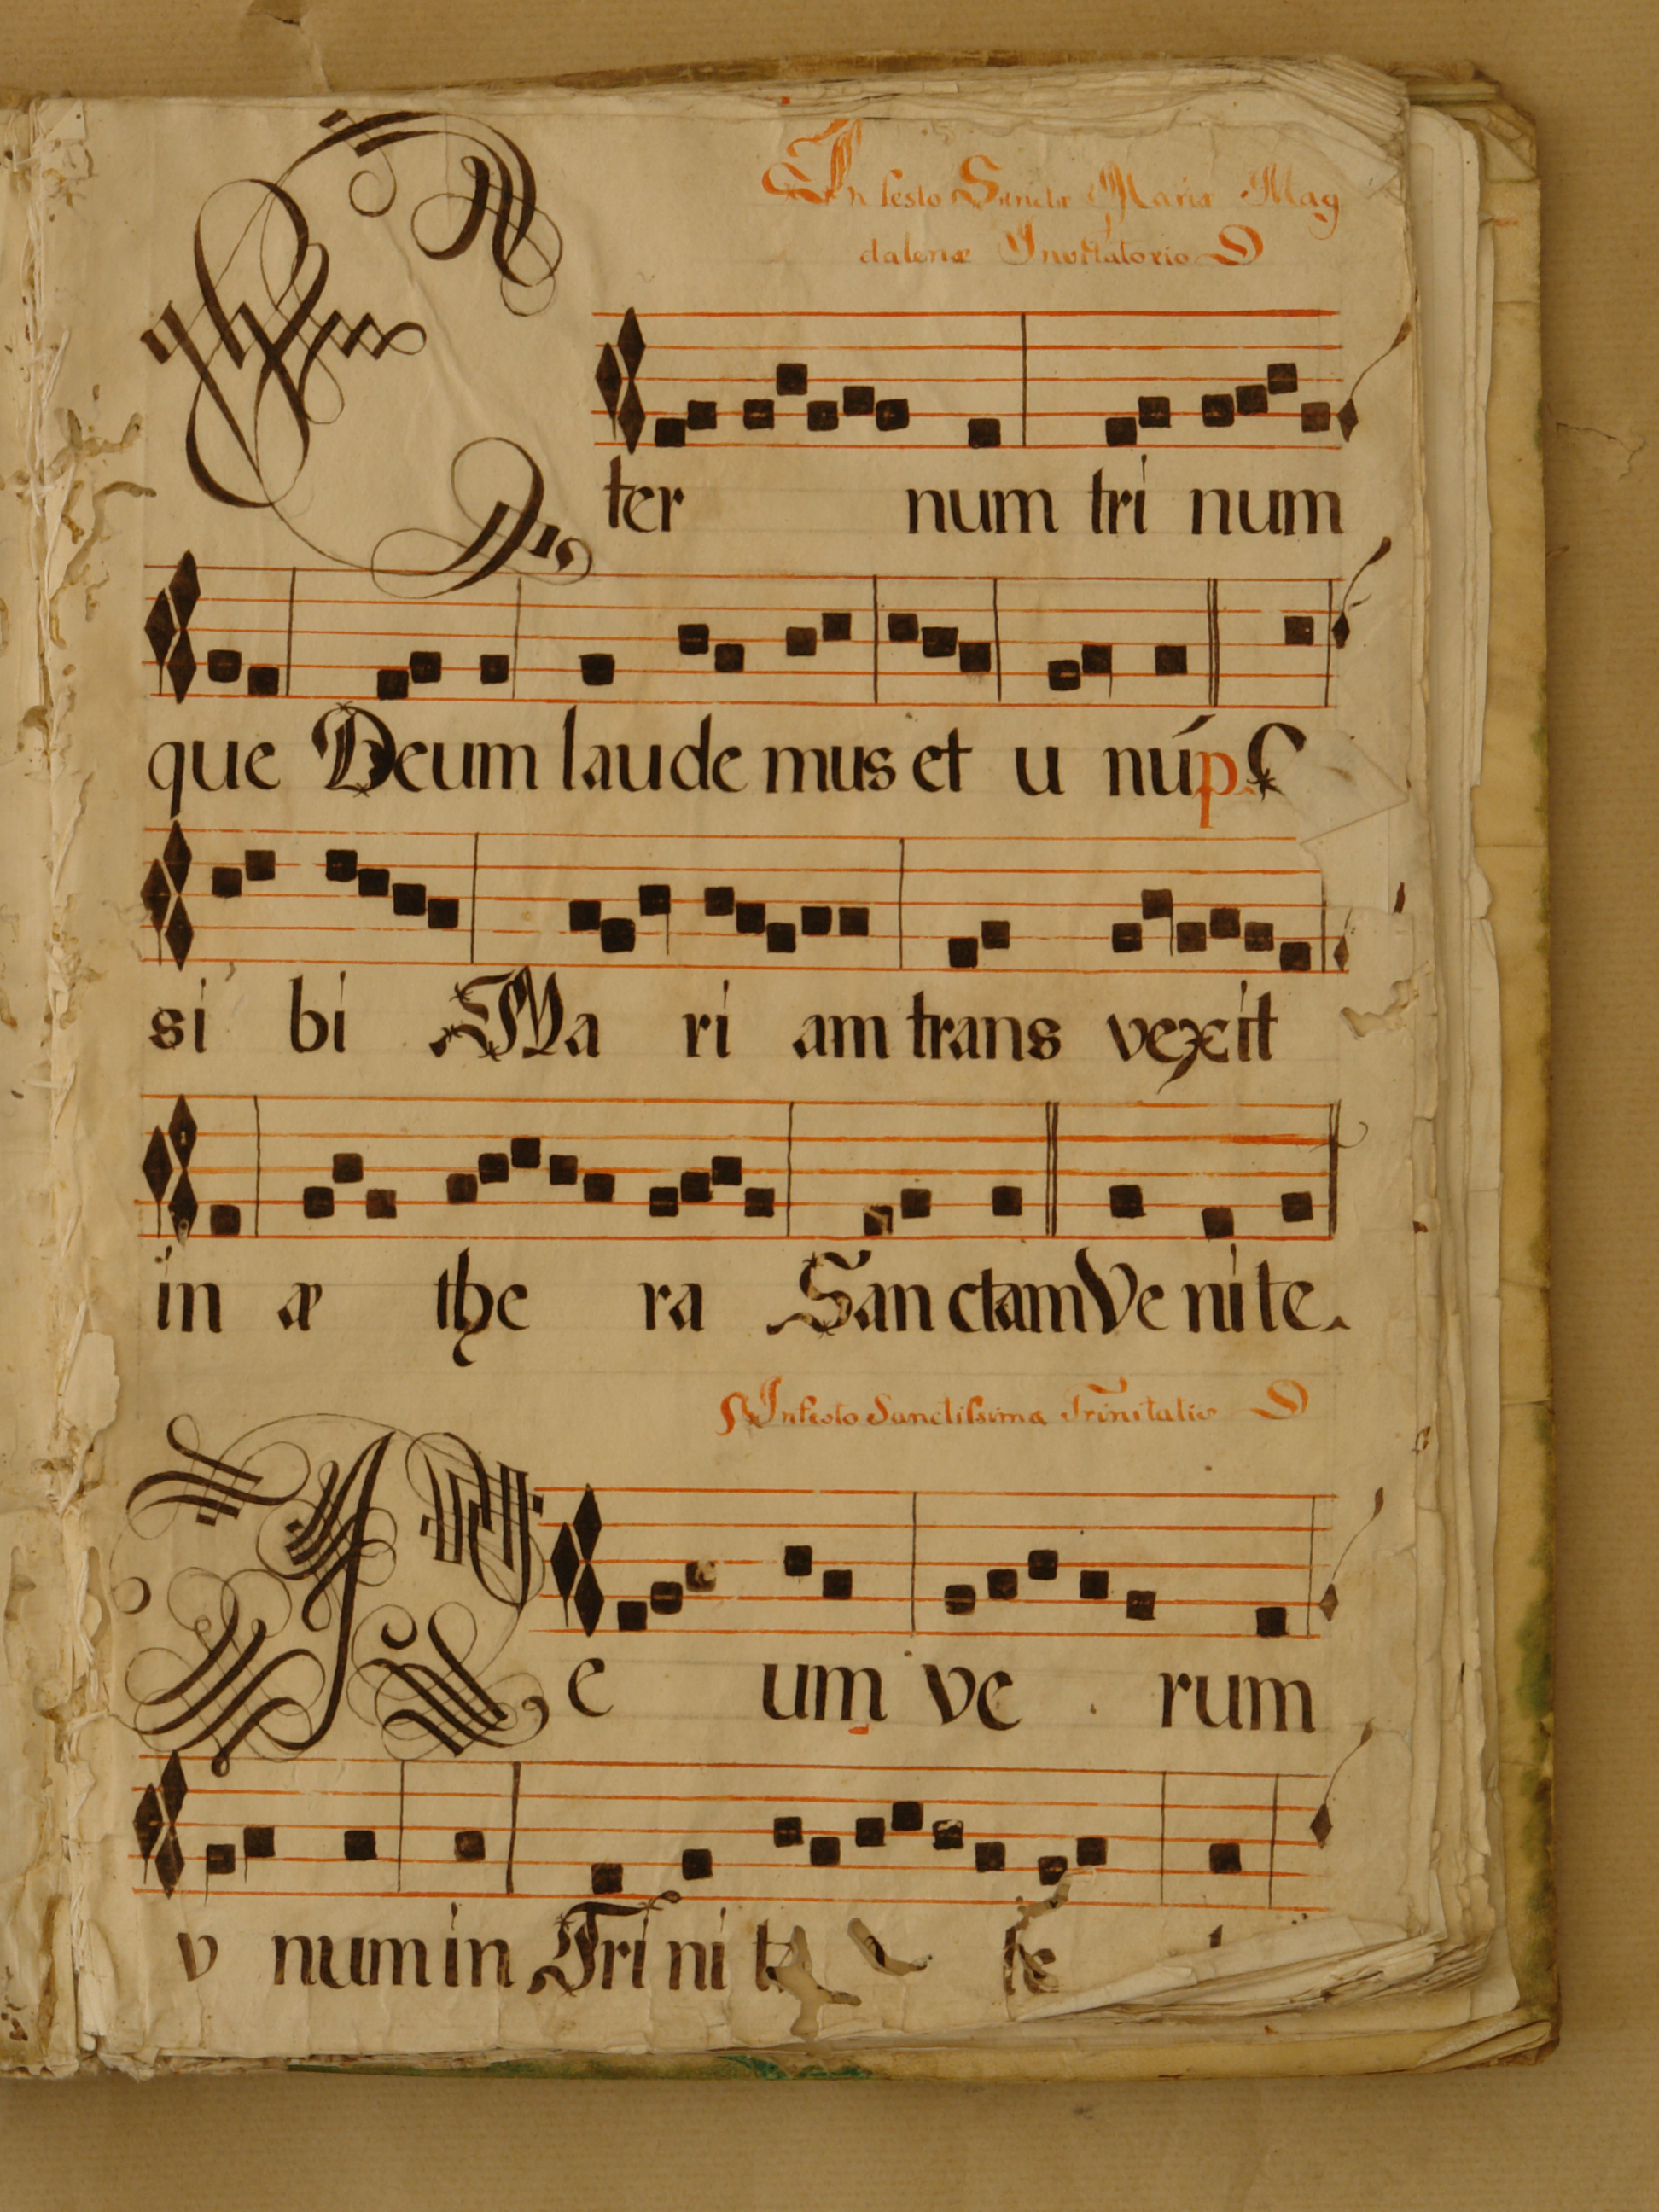 In festo Sanctæ Mariæ Mag
dalenæ Invitatorio
Æ ter num tri num
que Deum laude mus et u nú p S
si bi Ma ri am trans vexit
in æ the ra Sanctam Ve ni te.
In festo Sanctissima Trinitatis
D e um ve rum
v num in Tri ni te